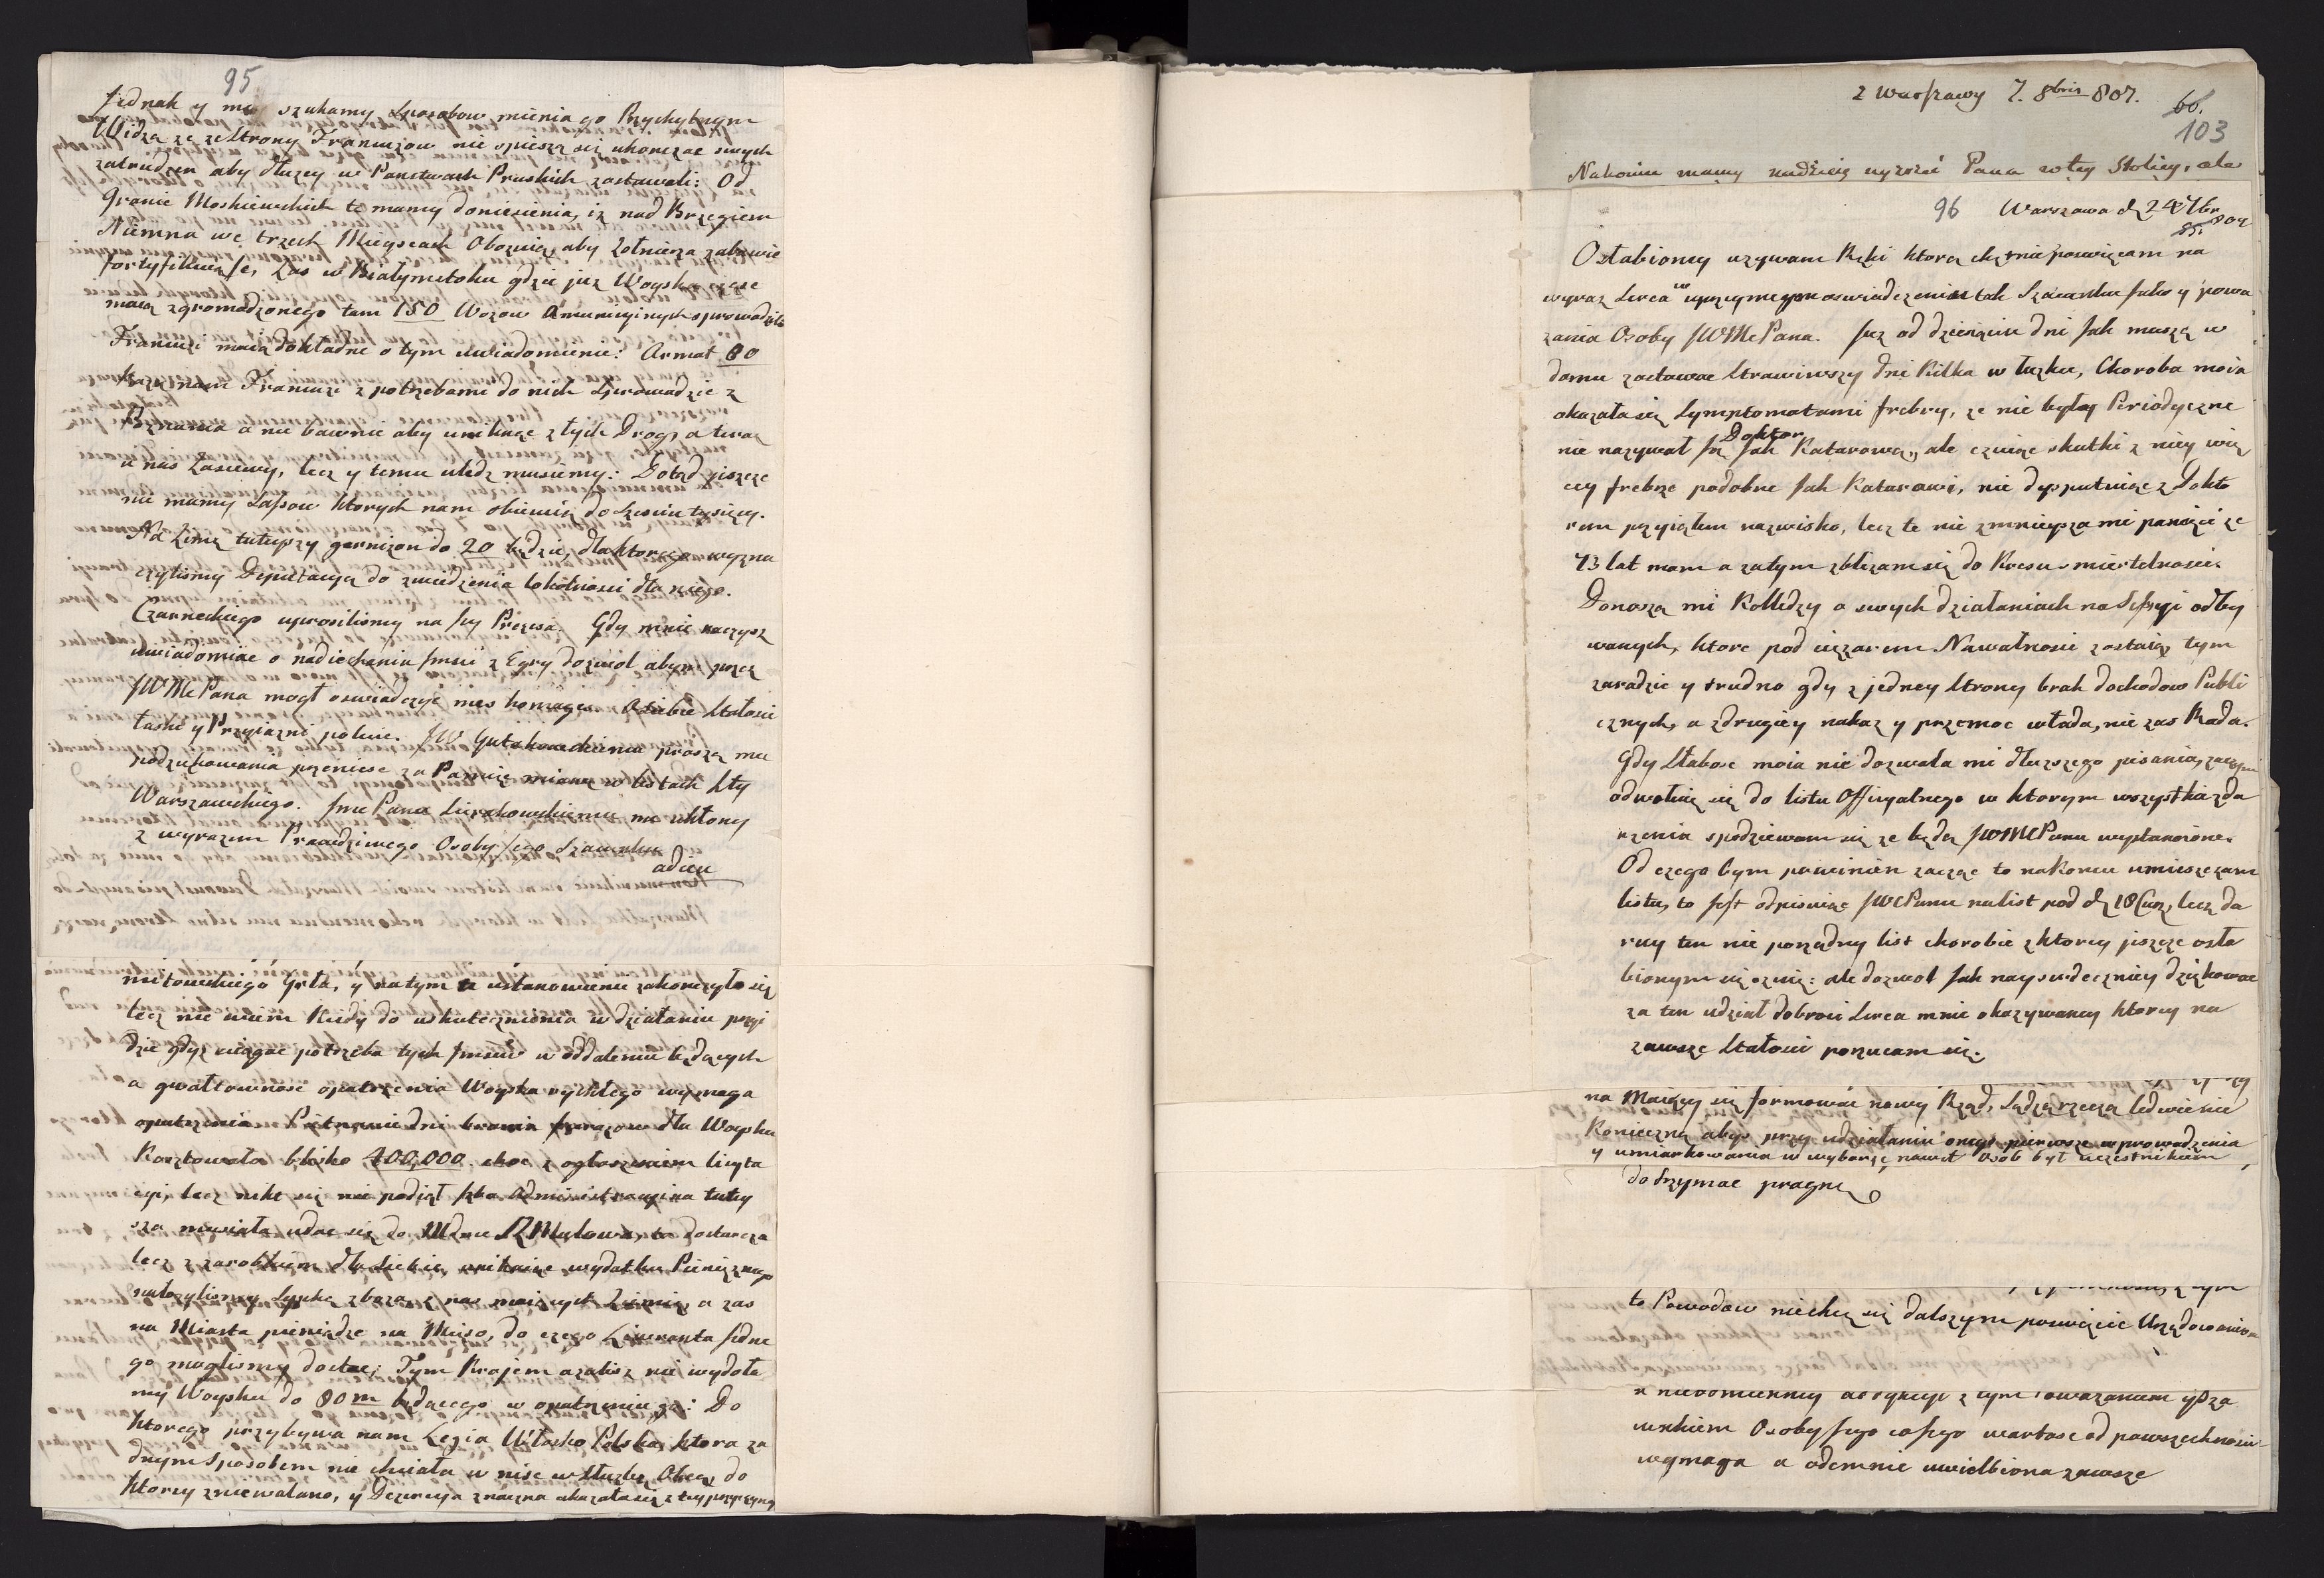 95
Jednak y my szukamy sposobow mienia go Przychylnym
Widzą ze ze strony Francuzow nie spieszą się ukonczac swych
zatrudzen aby dłuzey w Panstwach Pruskich zostawali: Od
Granic Moskiewskich te mamy doniesienia, iz nad Brzegiem
Niemna we trzech Mieyscach Obozuią, aby Zołnierza zabawic
fortyfikuią się, Zas w Białymstoku gdzie juz Woyska
maią zgromadzonego tam 150 Wozow Amunicyinych sprowadzili
Francuzi maią dokładne o tym uwiadomienie: Armat 80
kazą nam Francuzi z potrzebami do nich sprowadzic z
a nie bawnie aby uniknąc złych Drog, a teraz
u nas Zasiewy, lecz y temu uledz musiemy: Dotąd jeszcze
nie mamy Sassow ktorych nam obiecuią do szesciu tysięcy.
Na Zimę tuteyszy garnizon do 20 będzie, dla ktorego wyzna
czylismy Deputacyą do zwiedzenia lokalnosci dla niego.
Czarneckiego uprosilismy na Jey Prezesa. Gdy mnie raczysz
uwiadomiac o nadiechaniu Jmsci z Egry dozwol abym przez
JWMc Pana mogł oswiadczyc mes homages. A siebie stałosci
łaski y Przyiazni polecic. JW Gutakowskiemu proszę me
podziękowania przeniesc za Pamięc mianą w listach Hty
Warszawskiego. Jmc Panu Sierakowskiemu me ukłony
z wyrazem Prawdziwego Osoby Jego Szacunku
adieu
mitowskiego Gría, y na tym te ustanowienie zakonczyło się
lecz nie wiem kiedy do uskutecznienia w działaniu przyi
dzie gdyz sciągac potrzeba tych Jmsciow w oddaleniu będących
a gwałtownosc opatrzenia Woyska rychłego wymaga
opatrzenia Pietnascie dni brania furazow dla Woyska
Kosztowała blisko 400,000. choc z ogłoszeniem licyta
cyi, lecz nikt się nie podiął Jzba Administracyina tutey
sza musiała udac się do to dostarcza
lecz z zarobkiem dla siebie, unikaiąc wydatku Pieniężnego
nałozylismy sypkę zboza z nas maiących Ziemię, a zas
na Miasta pieniądze na Mięso, do czego Liweranta Jedne
go moglismy dostac: Tym Krajem azalisz nie wydoła
my Woysku do 80 m będącego w opatrzeniu go: Do
ktorego przybywa nam Legia Włosko Polska, ktora za
dnym sposobem nie chciała w niść w słuzbę Obcą, do
ktorey zniewalano, y Dezercya znaczna okazała się z tey przyczyny
z Warszawy 7. 8bris 807.
66.
103
Nakoniec mamy nadzieię uyrzeć Pana w tey Stolicy, ale
96 Warszawa d 24 7br 807
85.
Osłabioney uzywam Ręki ktorą chętnie poswięcam na
wyraz Serca uprzeymego w oswiadczeniu tak Szacunku Jako y powa
zania Osoby JWMc Pana. Juz od dziesięciu dni Jak muszę w
domu zostawac strawiwszy dni kilka w łuzku, Choroba moia
okazała się Symptomatami frebry, ze nie były Periodyczne
nie nazywał Ją Doktor Jak Katarową, ale czuiąc skutki z niey wię
cey frebrze podobne Jak Katarowi, nie dysputuiąc z Dokto
rem przyiąłem nazwisko, lecz te nie zmnieysza mi pamięci ze
73 lat mam a zatym zblizam się do Kresu smiertelnosci.
Donoszą mi Kolledzy o swych działaniach na Sessyi odby
wanych, ktore pod ciężarem Nawałnosci zostaią, tym
zaradzic y trudno gdy z jedney strony brak dochodow Publi
cznych, a z drugiey nakaz y przemoc włada, nie zas Rada.
Gdy słabosc moia nie dozwala mi dłuzszego pisania, zaczym
odwołuię się do listu Officyalnego w ktorym wszystkie zda
rzenia spodziewam się ze będą JWMcPanu wystawione.
Od czego bym powinien zacząc to na Koncu umieszczam
listu, to jest odpisuiąc JWMcPanu na list pod d 18 Cur, lecz da
ruy ten nie porządny list chorobie z ktorey jeszcze osła
bionym się czuię: ale dozwol Jak nayserdeczniey dziękowac
za ten udział dobroci Serca mnie okazywaney ktorey na
zawsze stałosci porucam się.
na Maiący się formować nowy Rząd, Sądzę rzeczą ledwie nie
Konieczną abys przy udziałaniu onego pierwsze wprowadzenia
y umiarkowania w wyborze nawet osob był uczestnikiem,
dotrzymac pragnę
to Powodow niechcę się dalszym poswięcic Urzędowaniom
z tym powazaniem y Sza
cunkiem Osoby Jego co Jego wartosc od powszechnosci
wymaga a odemnie uwielbiona zawsze